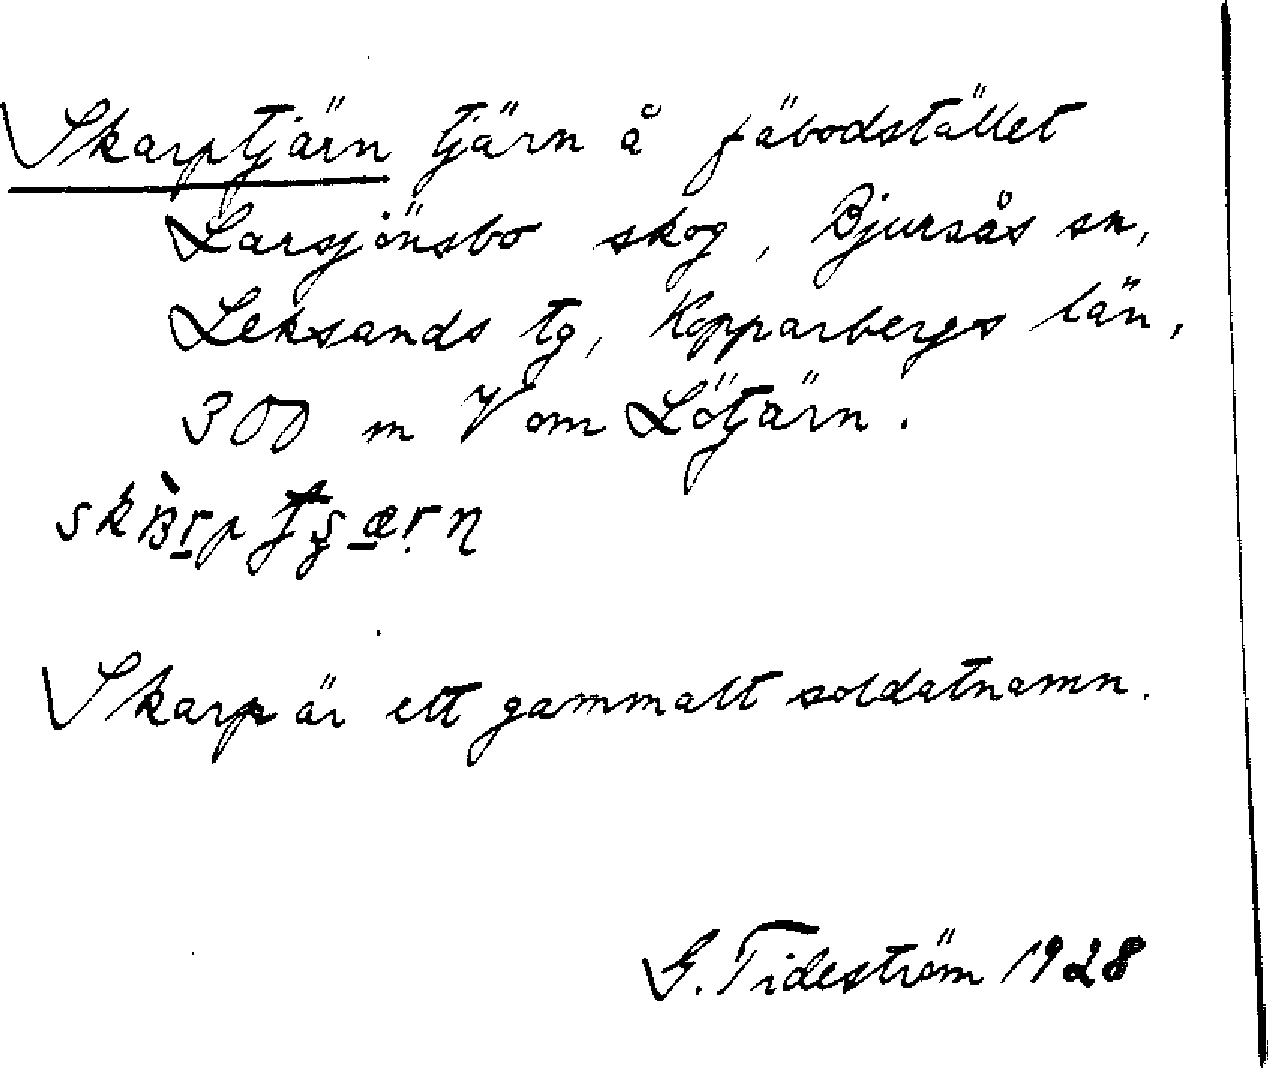 Skarptjärn tjärn å fäbodstället
Larsjönsbo skog, Bjursås sn,
Leksands tg, Kopparbergs län,
300 m V om Lötjärn.
Skarp är ett gammalt soldatnamn.
G. Tideström 1928